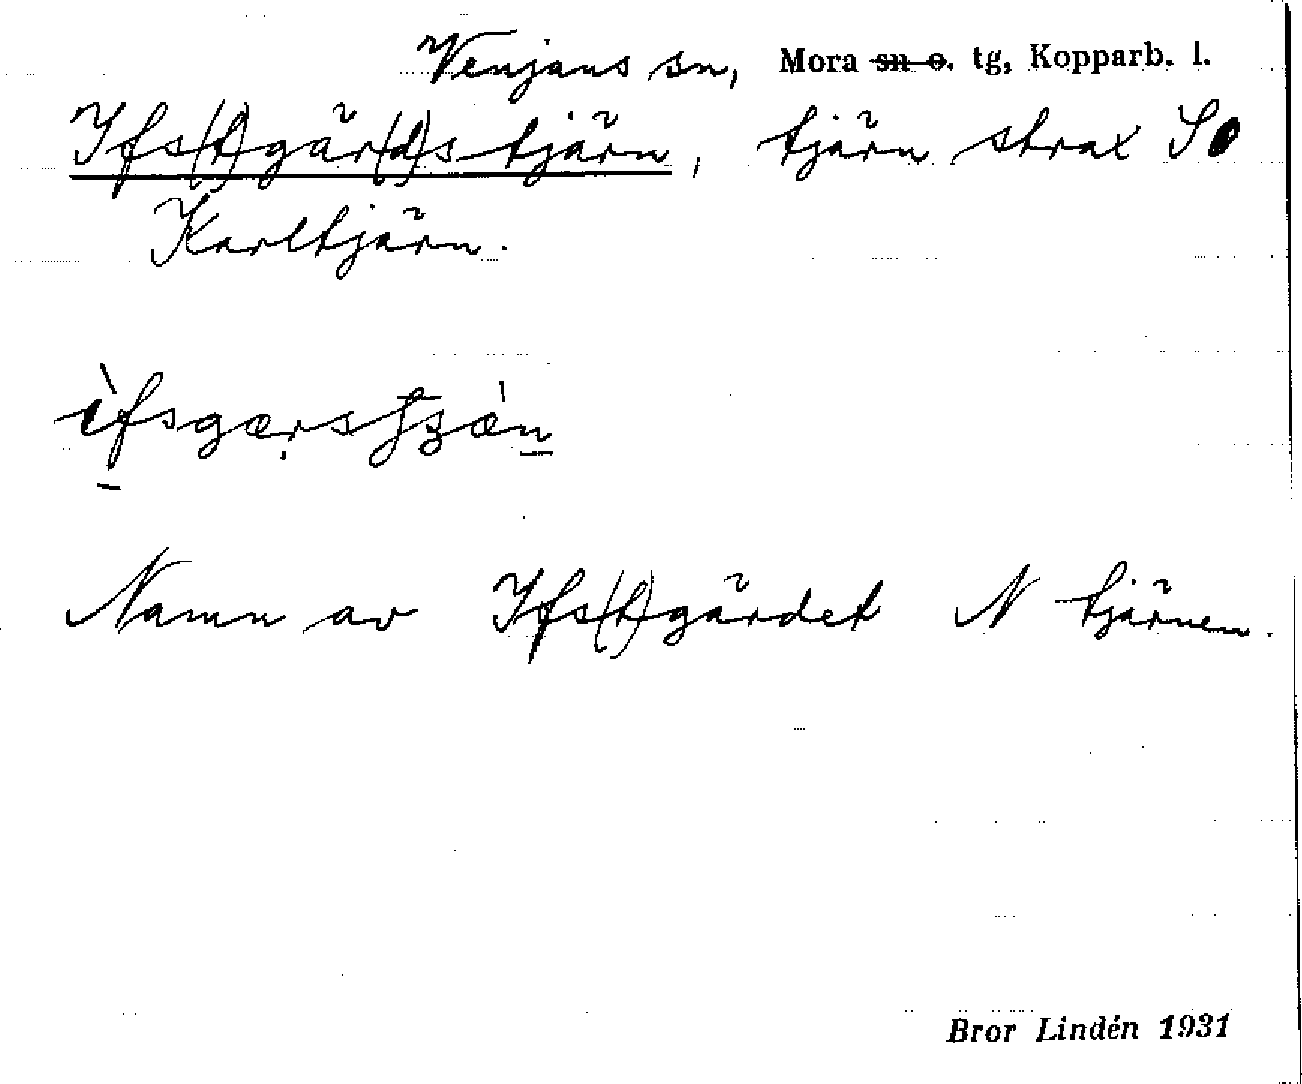 Venjans sn, Mora sn o. tg, Kopparb. l.
Ifs(t)gär(d)stjärn, tjärn strax SO
Karltjärn.
Namn av Ifs(t)gärdet N tjärnen.
Bror Lindén 1931